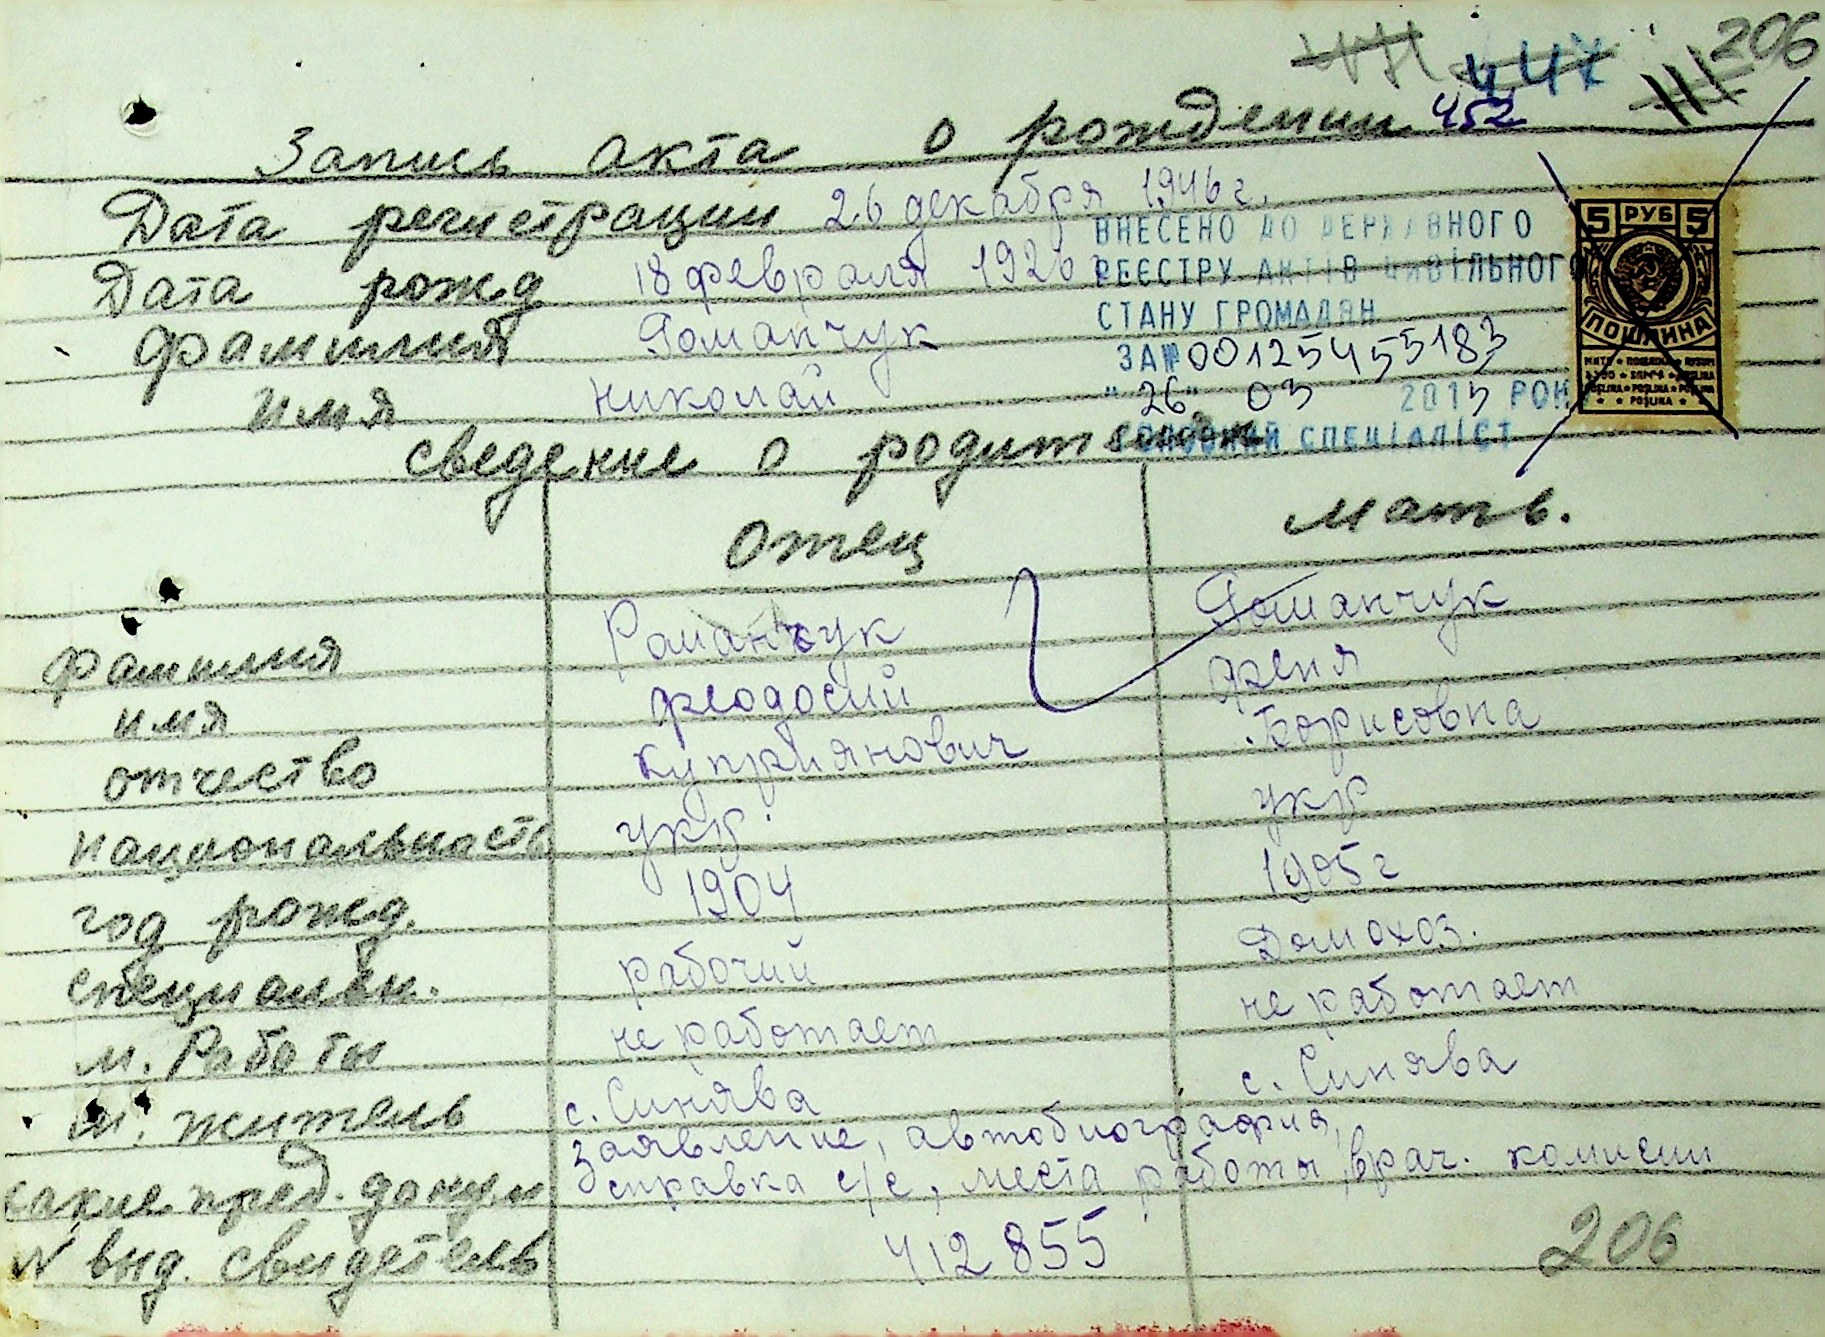 206
447
Запись акта о рождении 452
Дата регистрации 26 декабря 1946 г.
Дата рожд 18 февраля 1926 г.
фамилия Романчук
имя Николай
сведение о родителях
ВНЕСЕНО ДО ДЕРЖАВНОГО
РЕЄСТРУ АКТІВ ЦИВІЛЬНОГО
СТАНУ ГРОМАДЯН
ЗА № 00125455183
"26" 03 2015 РОКУ
ГОЛОВНИЙ СПЕЦІАЛІСТ
5 РУБ 5
ПОШЛИНА
отец мать.
фамилия Романчук Романчук
имя феодосий феня
отчество Куприянович Борисовна
национальность укр. укр
год рожд. 1904 1905 г
специальн. рабочий Домохоз.
м. Работы не работает не работает
м. житель с. Синява с. Синява
какие пред. докум заявление, автобиография,
справка с/с, места работы, врач. комисии
N выд. свидетель 412855
206